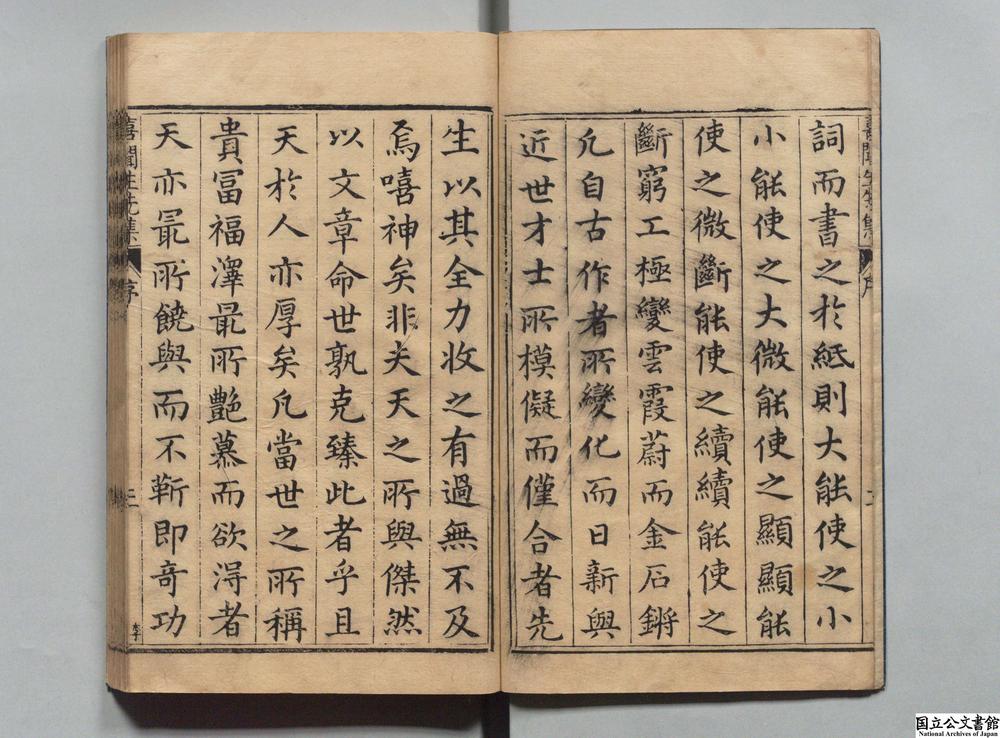 詞而書之於紙則大能使之小
小能使之大微能使之顯顯能
使之微斷能使之續續能使之
斷窮工極變雲霞蔚而金石鏘
凡自古作者所變化而日新與
近世才士所模儗而僅合者先
生以其全力收之有過無不及
焉嘻神矣非夫天之所與傑然
以文章命世孰克臻此者乎且
天於人亦厚矣凡當世之所稱
貴冨福澤最所艷慕而欲淂者
天亦最所饒與而不靳即奇功
序
三
李
国立公文書館
National Archives of Japan